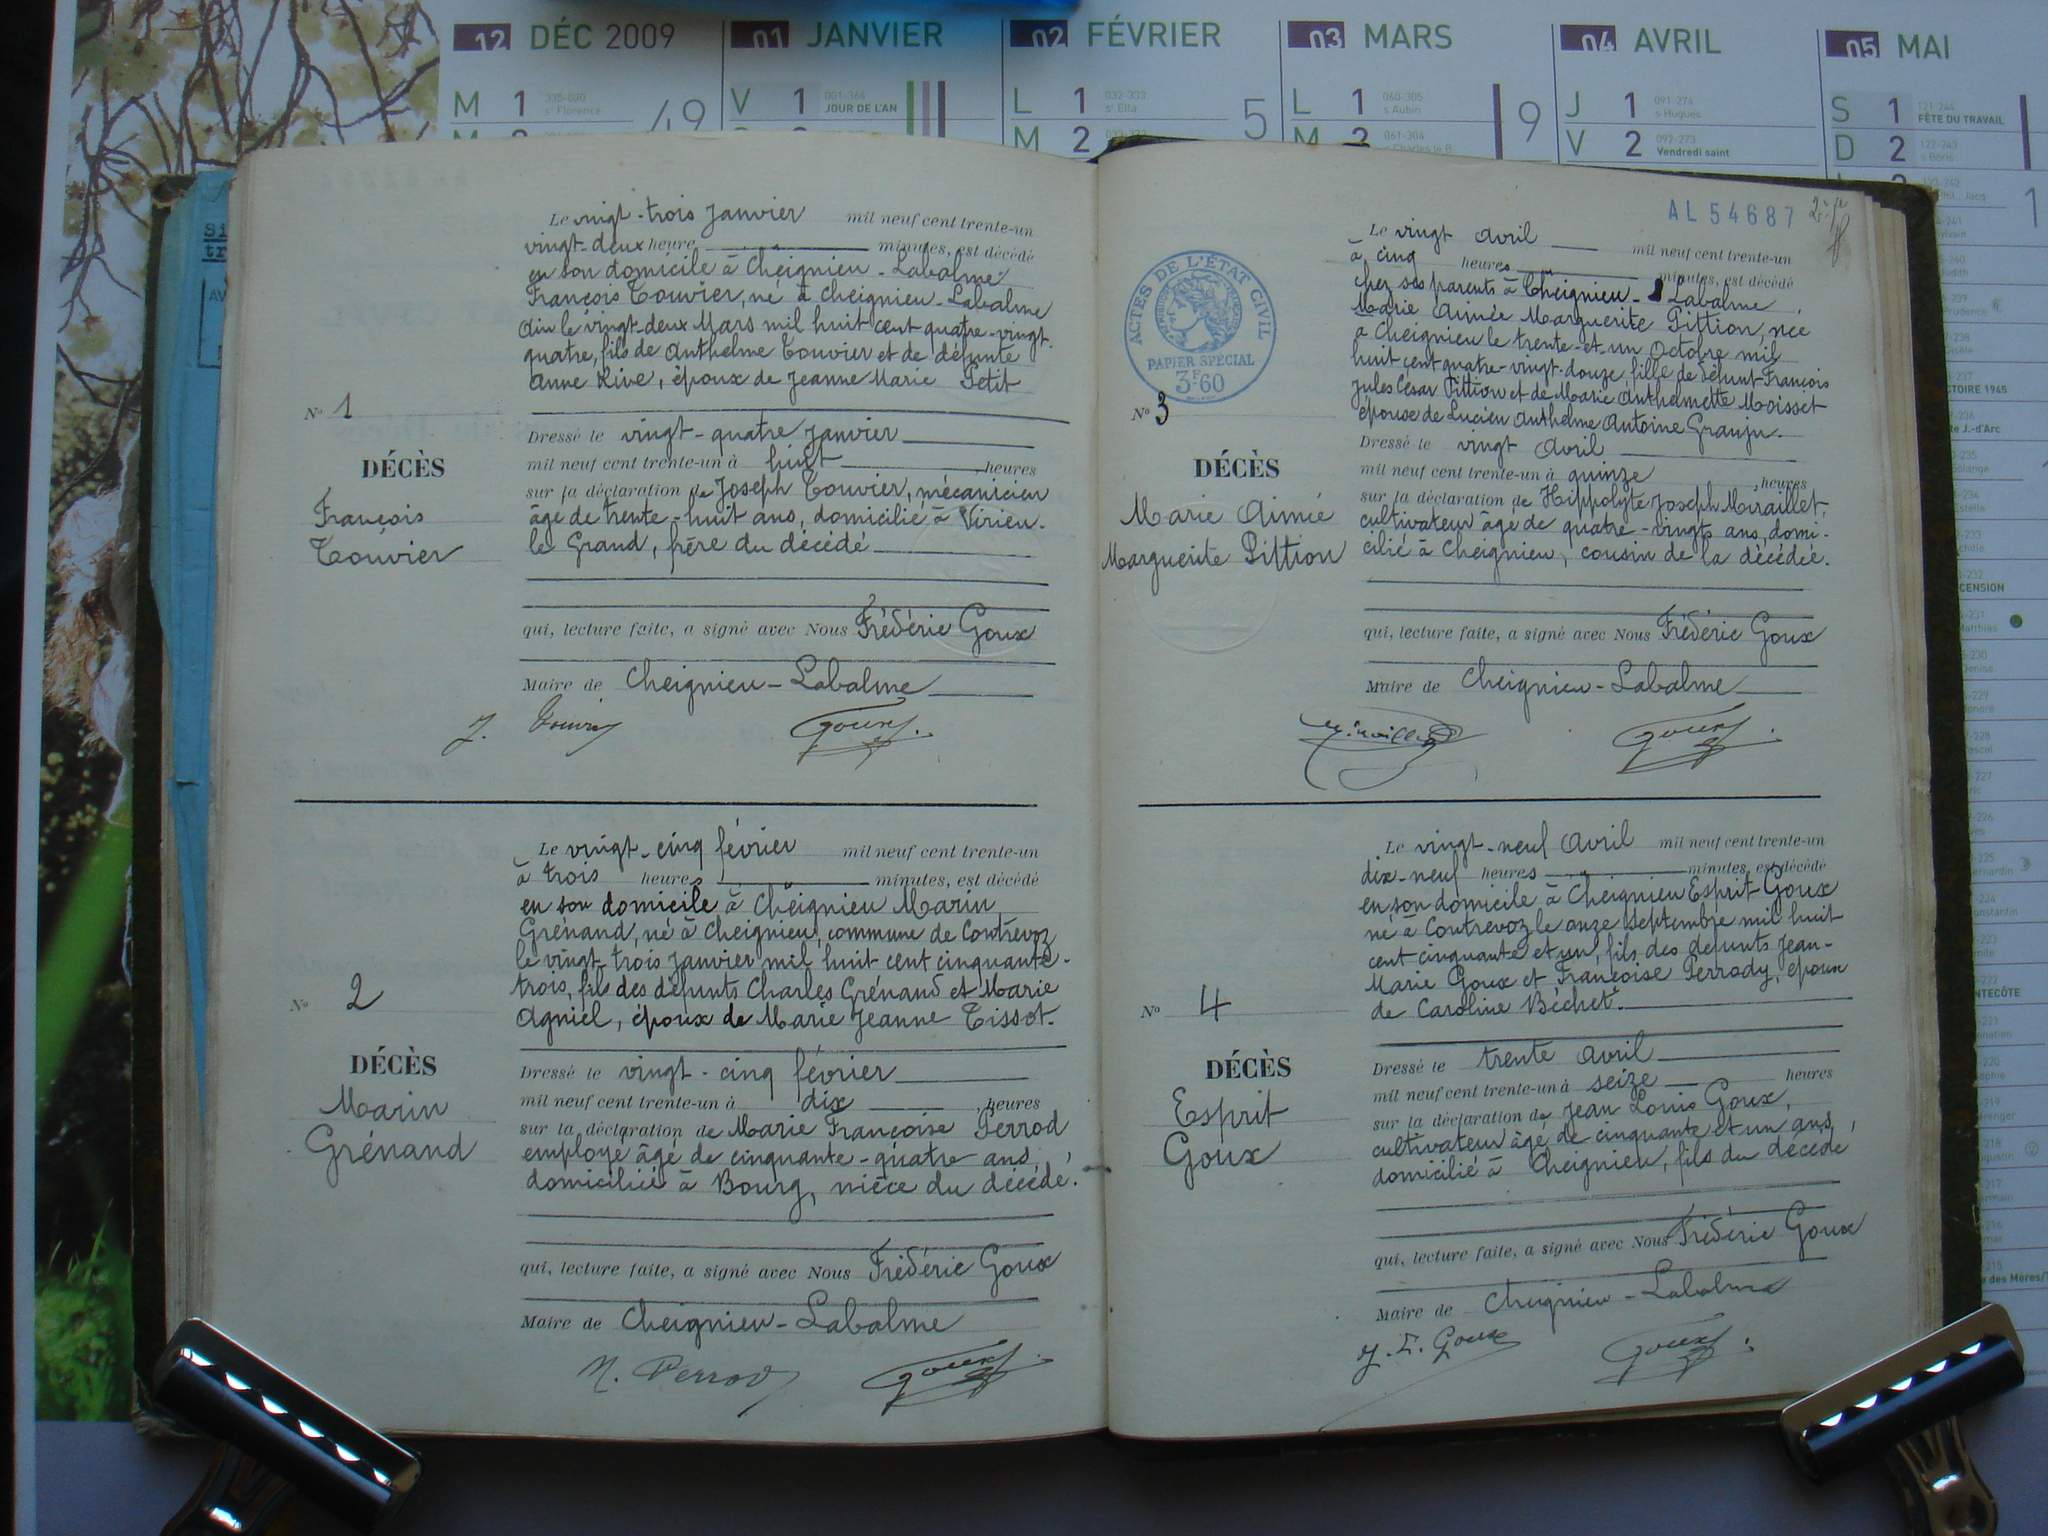 12 DÉC 2009
01 JANVIER
02 FÉVRIER
03 MARS
04 AVRIL
05 MAI
M 1 49
V 1 001-364 JOUR DE L'AN
L 1 032-333 se Ella 5
L 1 060-305 s Aubin 9
J 1 091-274 s Hugues
S 1 121-244 FÊTE DU TRAVAIL
M 2
M 2
V 2 092-273 Vendredi saint
D 2 122-243 s Boris
Le vingt-trois Janvier mil neuf cent trente-un
vingt-deux heure minutes, est décédé
en son domicile à Cheignieu-Labalme
François Touvier, né à Cheignieu-Labalme
Ain le vingt-deux Mars mil huit cent quatre-vingt-
quatre, fils de Anthelme Touvier et de défunte
Anne Rive, époux de Jeanne Marie Petit
No 1
Dressé le vingt-quatre Janvier
DÉCÈS
mil neuf cent trente-un à huit heures
François
Touvier
sur la déclaration de Joseph Touvier, mécanicien
âgé de trente-huit ans, domicilié à Virieu-
le Grand, frère du décédé
qui, lecture faite, a signé avec Nous Frédéric Goux
Maire de Cheignieu-Labalme
J. Touvier Goux
Le vingt-cinq février mil neuf cent trente-un
à trois heures minutes, est décédé
en son domicile à Cheignieu Marin
Grénand, né à Cheignieu, commune de Contrevoz
le vingt-trois Janvier mil huit cent cinquante-
trois, fils des défunts Charles Grénand et Marie
Agniel, époux de Marie Jeanne Tissot.
No 2
DÉCÈS
Marin
Grénand
Dressé le vingt-cinq février
mil neuf cent trente-un à dix heures
sur la déclaration de Marie Françoise Perrod
employé âgé de cinquante-quatre ans,
domiciliée à Bourg, nièce du décédé.
qui, lecture faite, a signé avec Nous Frédéric Goux
Maire de Cheignieu-Labalme
M. Perrod Goux
AL 54687
ACTES DE L'ÉTAT CIVIL
PAPIER SPÉCIAL
3F60
Le vingt avril mil neuf cent trente-un
à cinq heures minutes, est décédé
chez ses parents à Cheignieu-Labalme
Marie Aimée Marguerite Pittion, née
à Cheignieu le trente-et-un Octobre mil
huit cent quatre-vingt-douze, fille de défunt François
Jules César Pittion et de Marie Anthelmette Moisset
épouse de Lucien Anthelme Antoine Granju.
No 3
DÉCÈS
Marie Aimée
Marguerite Pittion
Dressé le vingt avril
mil neuf cent trente-un à quinze heures
sur la déclaration de Hippolyte Joseph Miraillet,
cultivateur âgé de quatre-vingts ans, domi-
cilié à Cheignieu, cousin de la décédée.
qui, lecture faite, a signé avec Nous Frédéric Goux
Maire de Cheignieu-Labalme
Goux
Le vingt-neuf avril mil neuf cent trente-un
dix-neuf heures minutes, est décédé
en son domicile à Cheignieu Esprit Goux
né à Contrevoz le onze Septembre mil huit
cent cinquante et un, fils des défunts Jean-
Marie Goux et Françoise Perrody, époux
de Caroline Béchet.
No 4
DÉCÈS
Esprit
Goux
Dressé le trente avril
mil neuf cent trente-un à seize heures
sur la déclaration de Jean Louis Goux,
cultivateur âgé de cinquante et un ans,
domicilié à Cheignieu, fils du décédé
qui, lecture faite, a signé avec Nous Frédéric Goux
Maire de Cheignieu-Labalme
J. L. Goux Goux